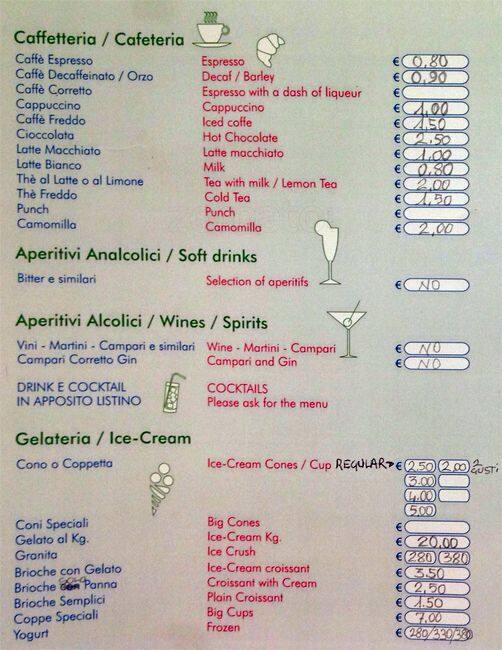 Caffetteria / Cafeteria
Caffè Espresso Espresso € 0,80
Caffè Decaffeinato / Orzo Decaf / Barley € 0,90
Caffè Corretto Espresso with a dash of liqueur €
Cappuccino Cappuccino € 1,00
Caffè Freddo Iced coffe € 1,50
Cioccolata Hot Chocolate € 2,50
Latte Macchiato Latte macchiato € 1,00
Latte Bianco Milk € 0,80
Thè al Latte o al Limone Tea with milk / Lemon Tea € 2,00
Thè Freddo Cold Tea € 1,50
Punch Punch €
Camomilla Camomilla € 2,00
Aperitivi Analcolici / Soft drinks
Bitter e similari Selection of aperitifs € NO
Aperitivi Alcolici / Wines / Spirits
Vini - Martini - Campari e similari Wine - Martini - Campari € NO
Campari Corretto Gin Campari and Gin € NO
DRINK E COCKTAIL COCKTAILS
IN APPOSITO LISTINO Please ask for the menu
Gelateria / Ice-Cream
Cono o Coppetta Ice-Cream Cones / Cup REGULAR € 2.50 2,00 2 GUSTI
3.00
4.00
5,00
Coni Speciali Big Cones €
Gelato al Kg. Ice-Cream Kg. € 20,00
Granita Ice Crush € 280 380
Brioche con Gelato Ice-Cream croissant € 3,50
Brioche Panna Croissant with Cream € 2,50
Brioche Semplici Plain Croissant € 1.50
Coppe Speciali Big Cups € 7,00
Yogurt Frozen € 280/330/380